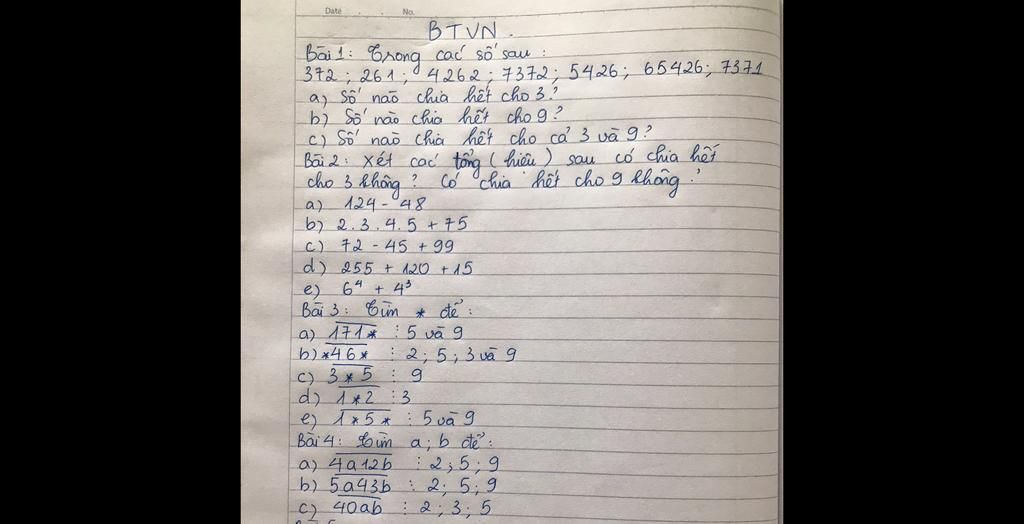 Date No.
BTVN.
Bài 1: Trong các số sau:
372; 261; 4262; 7372; 5426; 65426; 7371
a) Số nào chia hết cho 3?
b) Số nào chia hết cho 9?
c) Số nào chia hết cho cả 3 và 9?
Bài 2: Xét các tổng (hiệu) sau có chia hết
cho 3 không? Có chia hết cho 9 không?
a) 124 - 48
b) 2.3.4.5 + 75
c) 72 - 45 + 99
d) 255 + 120 + 15
e) 6⁴ + 4³
Bài 3: Tìm * để:
a) 171* ⋮ 5 và 9
b) *46* ⋮ 2; 5; 3 và 9
c) 3*5 ⋮ 9
d) 1*2 ⋮ 3
e) 1*5* ⋮ 5 và 9
Bài 4: Tìm a; b để:
a) 4a12b ⋮ 2; 5; 9
b) 5a43b ⋮ 2; 5; 9
c) 40ab ⋮ 2; 3; 5